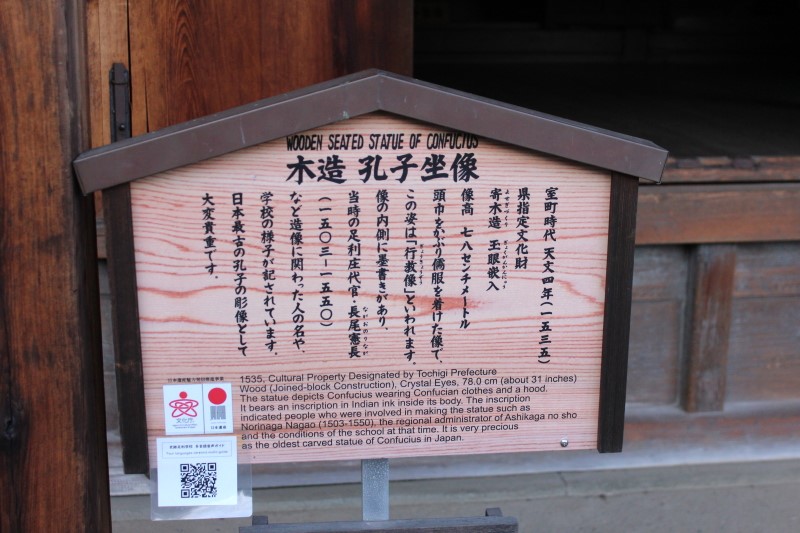 WOODEN SEATED STATUE OF CONFUCIUS
木造 孔子坐像
室町時代 天文四年（一五三五）
県指定文化財
寄木造 玉眼嵌入
像高 七八センチメートル
頭巾をかぶり儒服を着けた像で、
この姿は「行教像」といわれます。
像の内側に墨書きがあり、
当時の足利庄代官・長尾憲長
（一五〇三－一五五〇）
など造像に関わった人の名や、
学校の様子が記されています。
日本最古の孔子の彫像として
大変貴重です。
1535, Cultural Property Designated by Tochigi Prefecture
Wood (Joined-block Construction), Crystal Eyes, 78.0 cm (about 31 inches)
The statue depicts Confucius wearing Confucian clothes and a hood.
It bears an inscription in Indian ink inside its body. The inscription
indicated people who were involved in making the statue such as
Norinaga Nagao (1503-1550), the regional administrator of Ashikaga no sho
and the conditions of the school at that time. It is very precious
as the oldest carved statue of Confucius in Japan.
文化庁
日本遺産